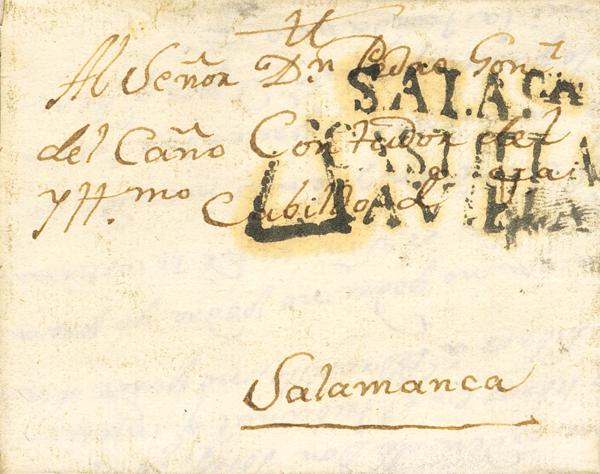 Al Señor Dn Pedro Gonz.
del Caño Contador del
Yttmo Cabildo de
SALACA
CASTILLA
LA VIEJA
Salamanca